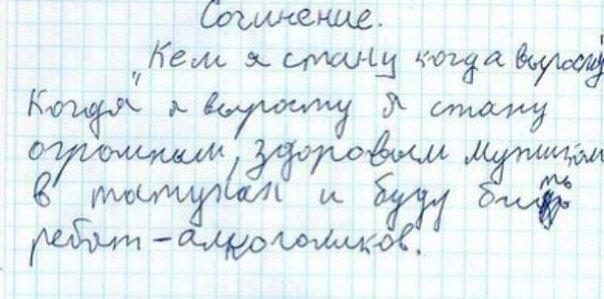 Сочинение.
"Кем я стану когда выросту"
Когда я выросту я стану
огромным, здоровым мужиком
в татухах и буду бить
ребят-алкоголиков.